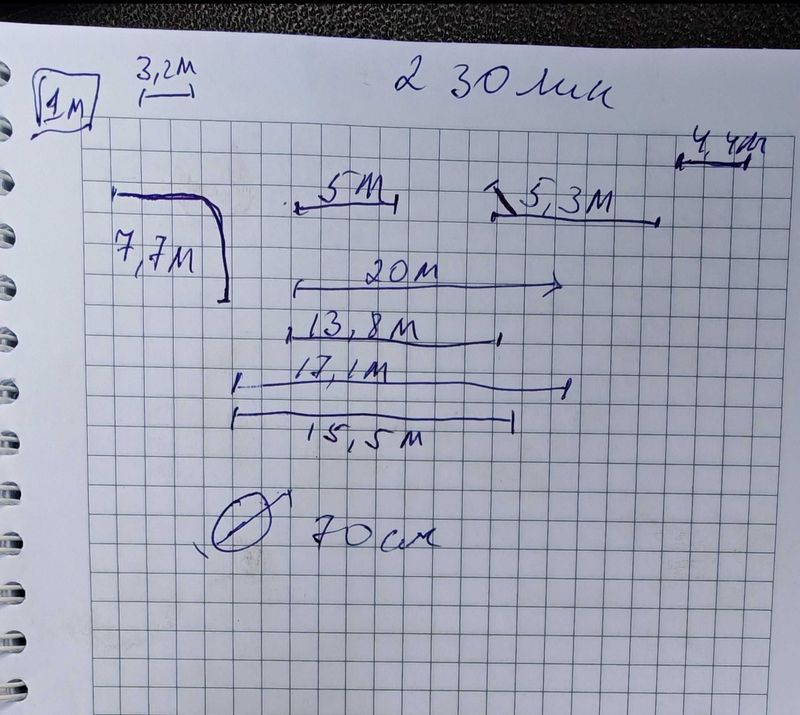 3,2м
1м
2 30 мин
4,4м
5м
5,3м
7,7м
20м
13,8м
17,1м
15,5м
70см